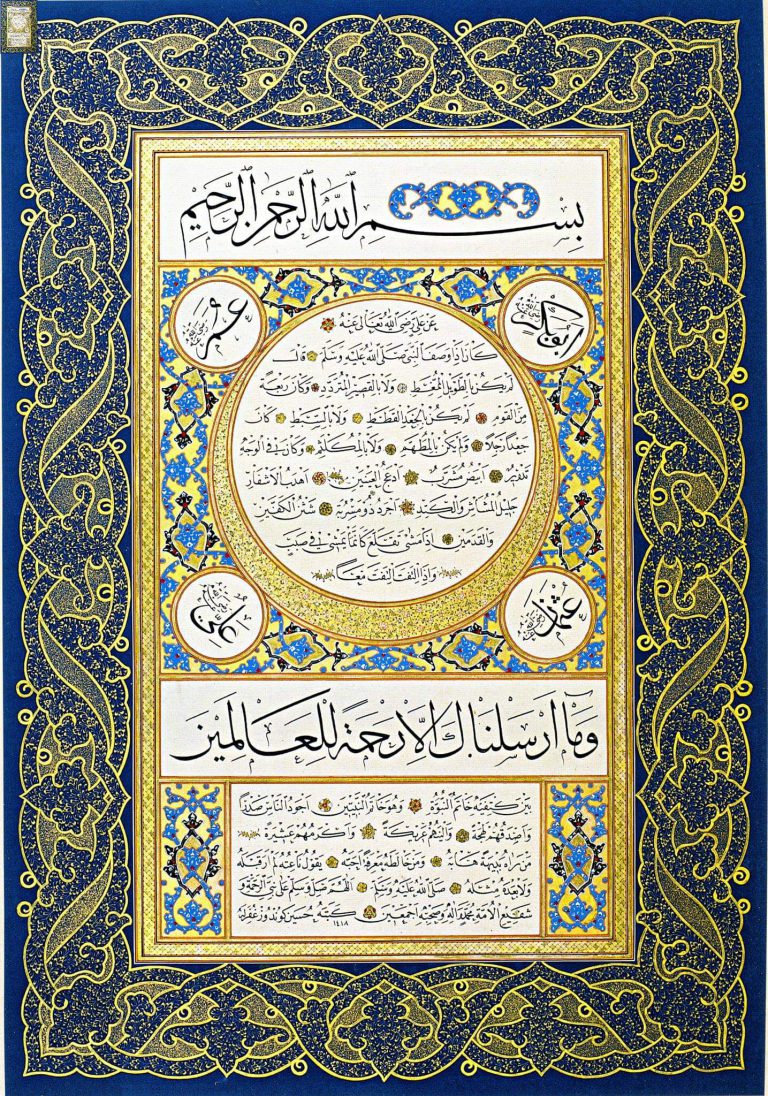 بِسْمِ اللهِ الرَّحْمٰنِ الرَّحِيمِ
ابوبكر رضي الله عنه
عمر رضي الله عنه
عن علي رضي الله تعالى عنه
كان اذا وصف النبي صلى الله عليه وسلم قال
لم يكن بالطويل الممغط ولا بالقصير المتردد وكان ربعة
من القوم لم يكن بالجعد القطط ولا بالسبط كان
جعدا رجلا ولم يكن بالمطهم ولا بالمكلثم وكان في الوجه
تدوير ابيض مشرب ادعج العينين اهدب الاشفار
جليل المشاش والكتد اجرد ذو مسربة شثن الكفين
والقدمين اذا مشى تقلع كانما يمشي في صبب
واذا التفت التفت معا
عثمان رضي الله عنه
علي رضي الله عنه
وما ارسلناك الا رحمة للعالمين
بين كتفيه خاتم النبوة وهو خاتم النبيين اجود الناس صدرا
واصدقهم لهجة والينهم عريكة واكرمهم عشيرة
من راه بديهة هابه ومن خالطه معرفة احبه يقول ناعته لم ار قبله
ولا بعده مثله صلى الله عليه وسلم اللهم صل وسلم على نبي الرحمة و
شفيع الامة محمد واله وصحبه اجمعين كتبه حسين كوندوز غفر له
١٤١٨